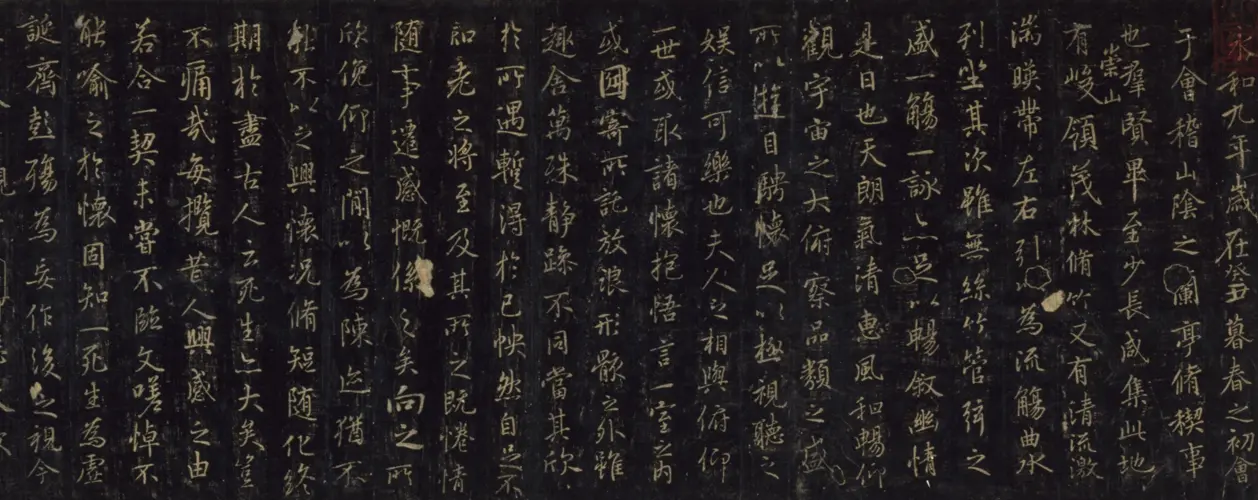 永和九年歲在癸丑暮春之初會
于會稽山陰之蘭亭脩稧事
也羣賢畢至少長咸集此地
有崇山峻領茂林脩竹又有清流激
湍暎帶左右引以為流觴曲水
列坐其次雖無絲竹管弦之
盛一觴一詠亦足以暢敘幽情
是日也天朗氣清惠風和暢仰
觀宇宙之大俯察品類之盛
所以遊目騁懷足以極視聽之
娛信可樂也夫人之相與俯仰
一世或取諸懷抱悟言一室之內
或因寄所託放浪形骸之外雖
趣舍萬殊靜躁不同當其欣
於所遇暫得於己怏然自足不
知老之將至及其所之既惓情
隨事遷感慨係之矣向之所
欣俛仰之閒以為陳迹猶不
能不以之興懷況脩短隨化終
期於盡古人云死生亦大矣豈
不痛哉每攬昔人興感之由
若合一契未嘗不臨文嗟悼不
能喻之於懷固知一死生為虛
誕齊彭殤為妄作後之視今